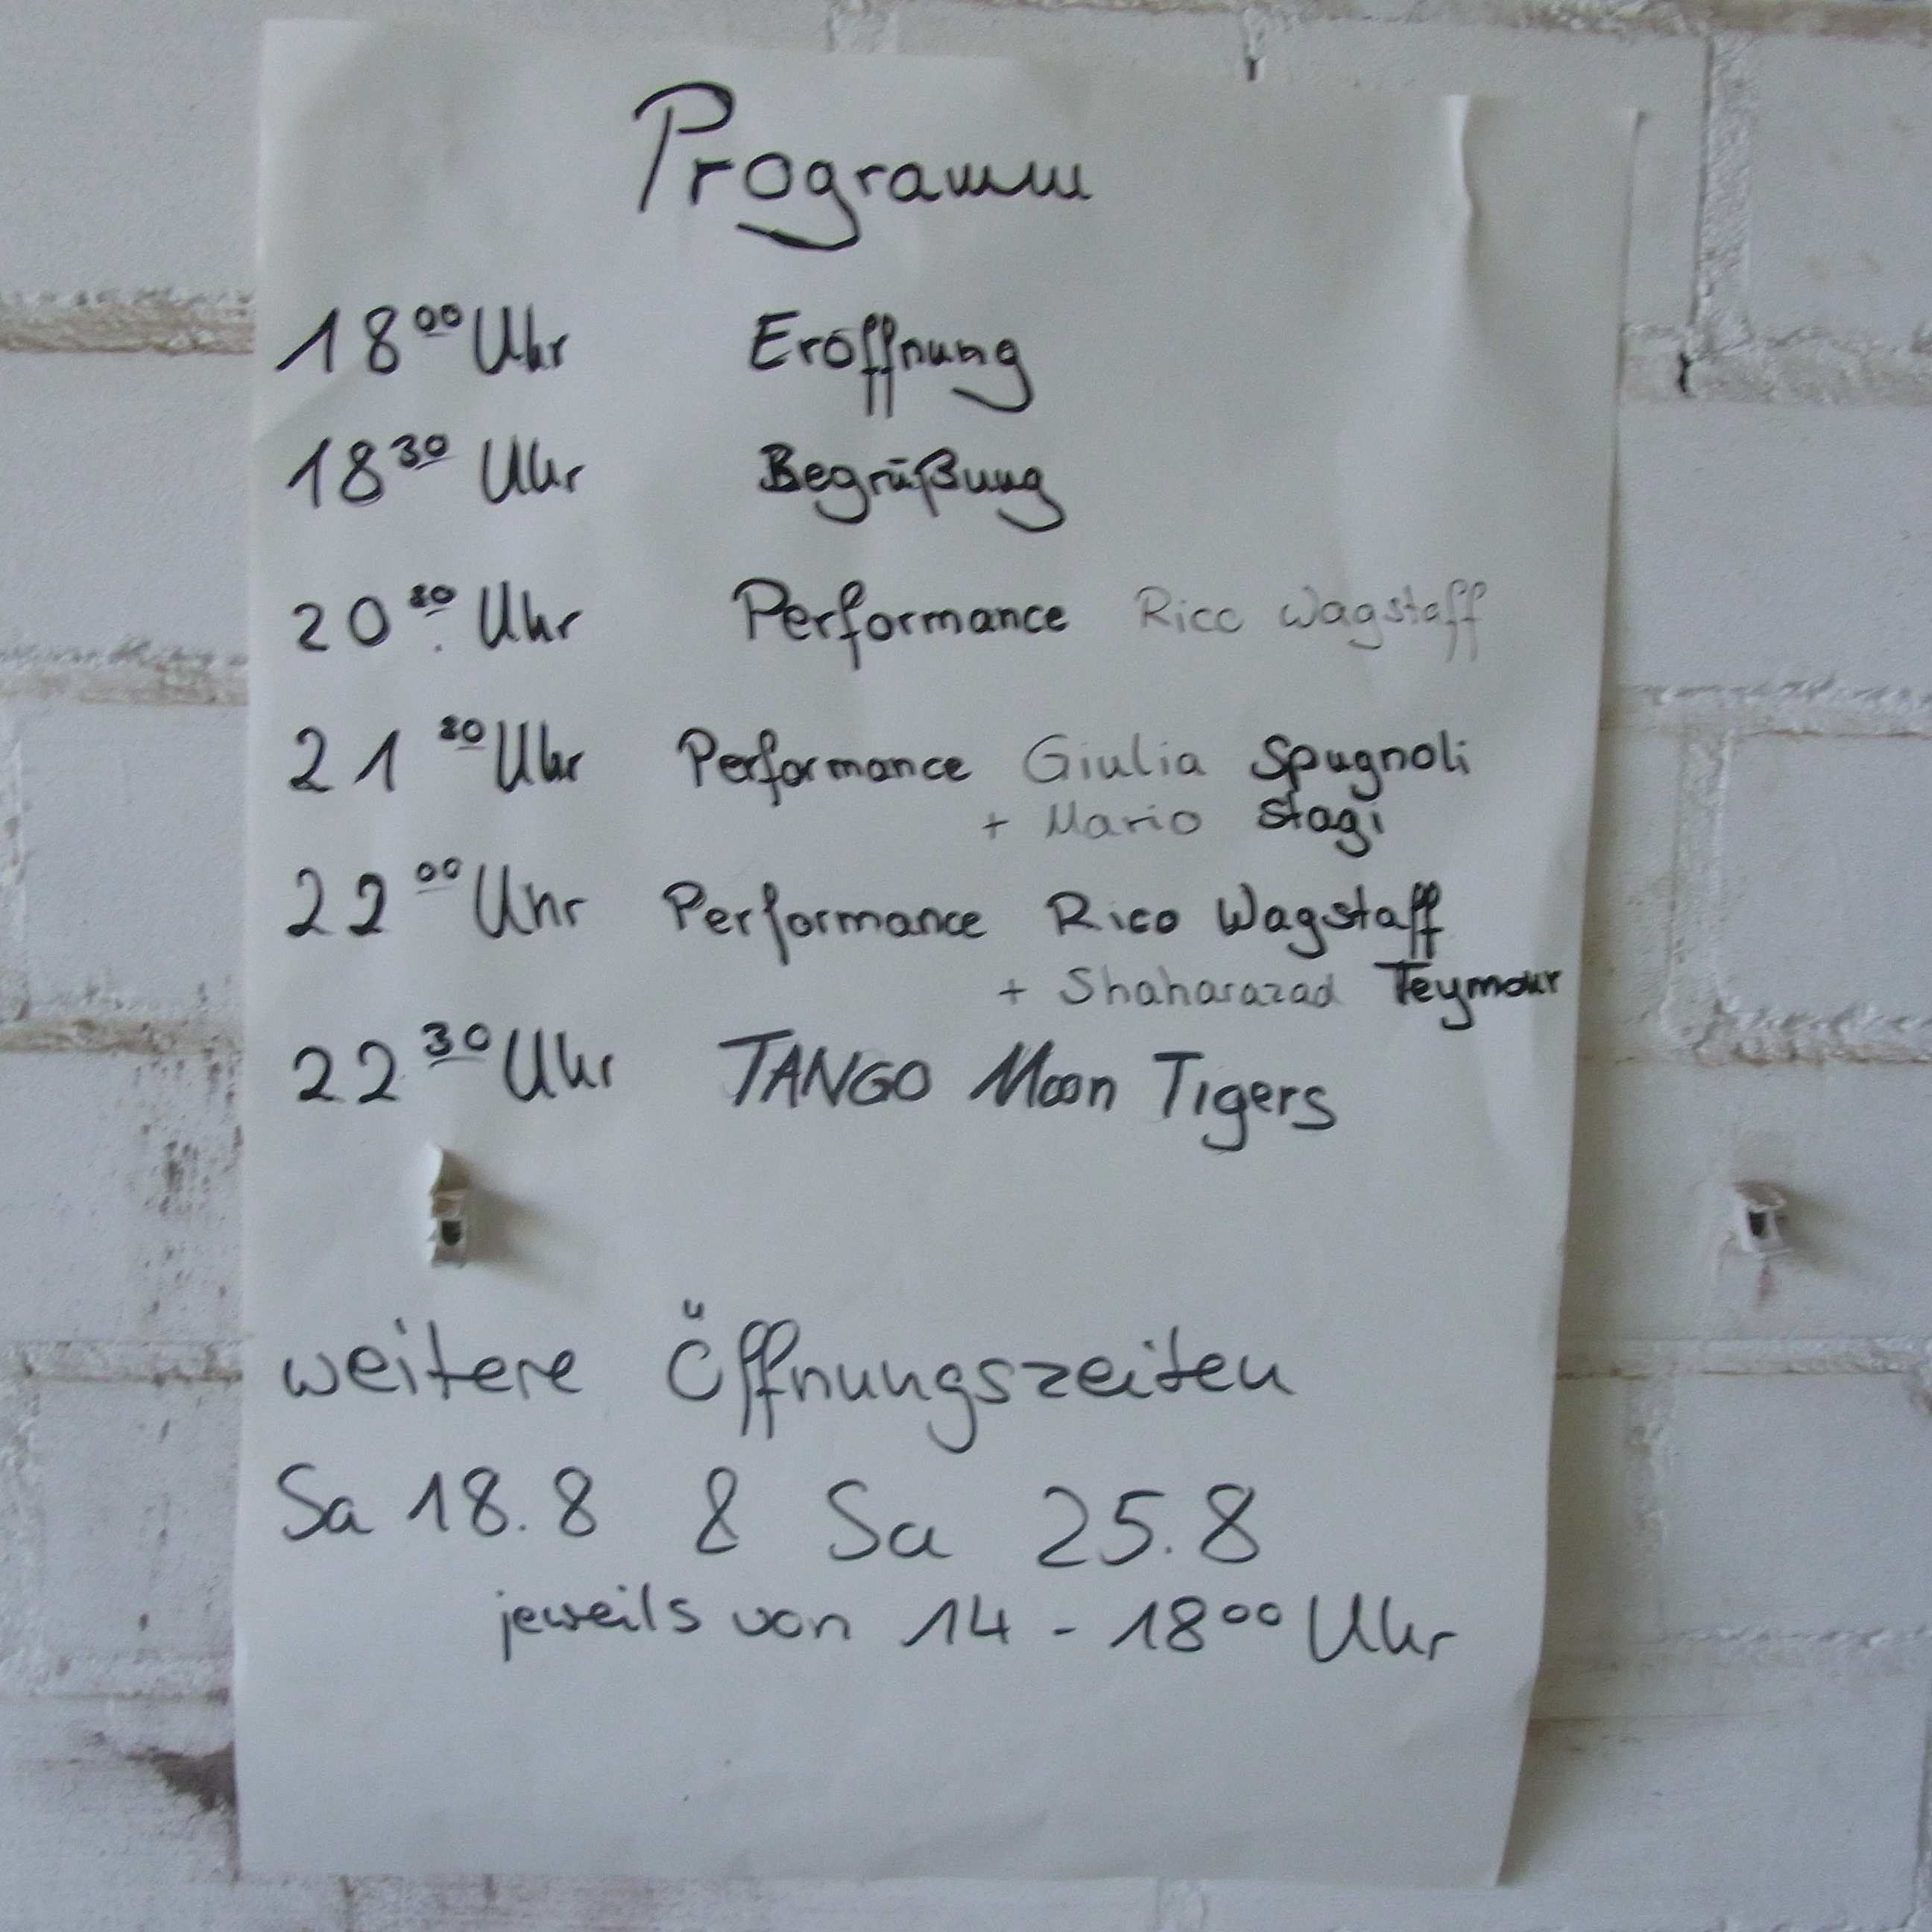 Programm
18⁰⁰ Uhr Eröffnung
18³⁰ Uhr Begrüßung
20³⁰ Uhr Performance Rico Wagstaff
21³⁰ Uhr Performance Giulia Spugnoli
+ Mario Stagi
22⁰⁰ Uhr Performance Rico Wagstaff
+ Shaharazad Teymour
22³⁰ Uhr TANGO Moon Tigers
weitere Öffnungszeiten
Sa 18.8 & Sa 25.8
jeweils von 14 - 18⁰⁰ Uhr